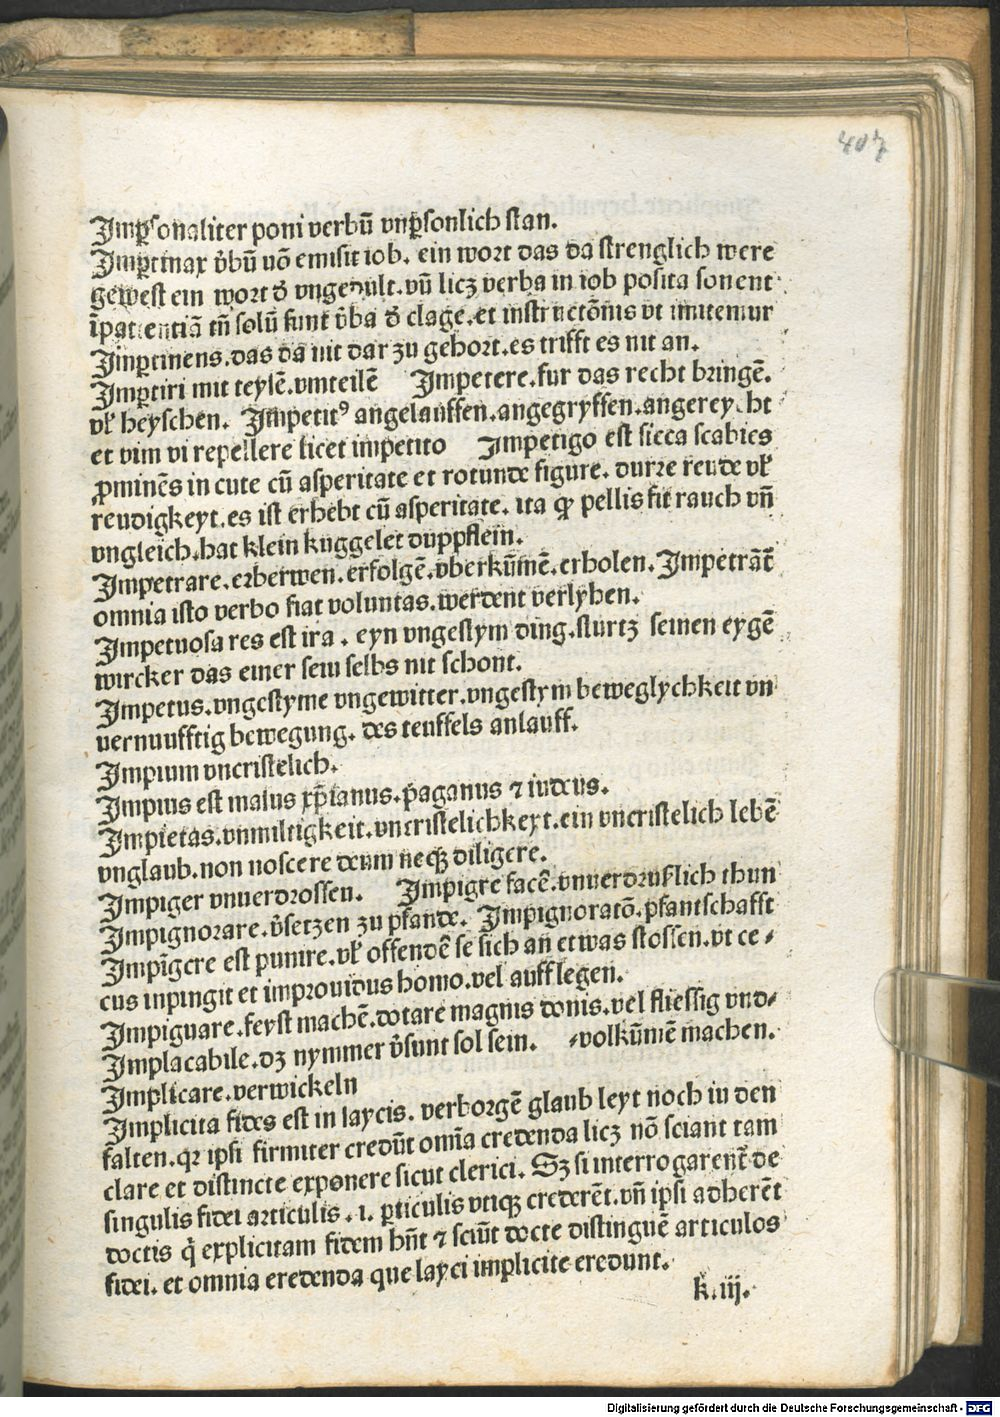 407
Imꝑsonaliter poni verbū vnꝑsonlich stan.
Imꝑtinax v̓bū uō emisit iob. ein wort das da strenglich were
gewest ein wort d̓ vngedult. vn̄ licz verba in iob posita sonent
īpatientiā tn̄ solū sunt v̓ba d̓ clage. et instructōnis vt imitemur
Imꝑtinens. das da nit dar zu gehort. es trifft es nit an.
Imꝑtiri mit teylē. vmteilē Impetere. fur das recht bringē.
vl̓ heyschen. Impetit⁹ angelauffen. angegryffen. angereycht
et vim vi repellere licet impetito Impetigo est sicca scabies
ꝓminēs in cute cū asperitate et rotunde figure. durre reude vl̓
reudigkeyt. es ist erhebt cū asperitate. ita ꝙ pellis fit rauch vn̄
vngleich. hat klein kuggelet duppflein.
Impetrare. erberwen. erfolgē. v̓berkūmē. erholen. Impetrāt̄
omnia isto verbo fiat voluntas. werdent verlyhen.
Impetuosa res est ira. eyn vngestym ding. sturtz seinen eygē
wircker das einer sein selbs nit schont.
Impetus. vngestyme vngewitter. vngestym beweglychkeit vn
vernuufftig bewegung. des teuffels anlauff.
Impium vncristelich.
Impius est malus xp̄ianus. p̄aganus ⁊ iudeus.
Impietas. vnmiltigkeit. vncristelichkeyt. ein vncristelich lebē
vnglaub. non noscere deum neqꝫ diligere.
Impiger vnuerdrossen. Impigre facē. vnuerdruſlich thun
Impignorare. v̓setzen zu pfande. Impignoratō. pfantschafft
Impīgere est punire. vl̓ offendē se sich an etwas stossen. vt ce⸗
cus inpingit et improuidus homo. vel aufflegen.
Impiguare. feyst machē. dotare magnis donis. vel fliessig vnd⸗
Implacabile. dz nymmer v̓sunt sol sein. ⸗volkūmē machen.
Implicare. verwickeln
Implicita fides est in laycis. verborgē glaub leyt noch in den
falten. qꝛ ipsi firmiter credūt omīa credenda licz nō sciant tam
clare et distincte exponere sicut clerici. Sz si interrogarent̄ de
singulis fidei articulis. i. ꝑticulis vtiqꝫ crederēt. vn̄ ipsi adherēt
doctis q̓ explicitam fidem hn̄t ⁊ sciūt docte distinguē articulos
fidei. et omnia eredenda que layci implicite eredunt.
k. iij.
Digitalisierung gefördert durch die Deutsche Forschungsgemeinschaft - DFG